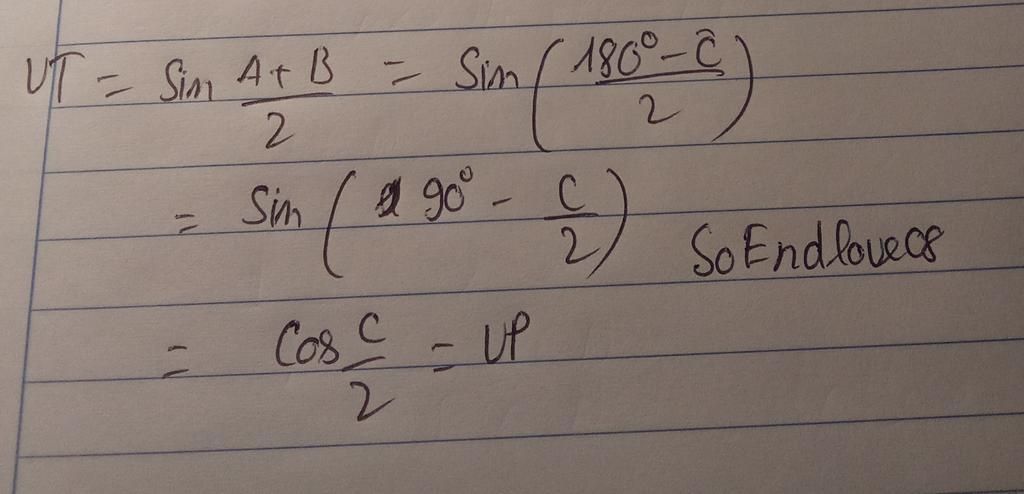 VT = Sin (A+B)/2 = Sin((180° - Ĉ)/2)
= Sin(90° - C/2)
SoEndloveos
= Cos C/2 = VP